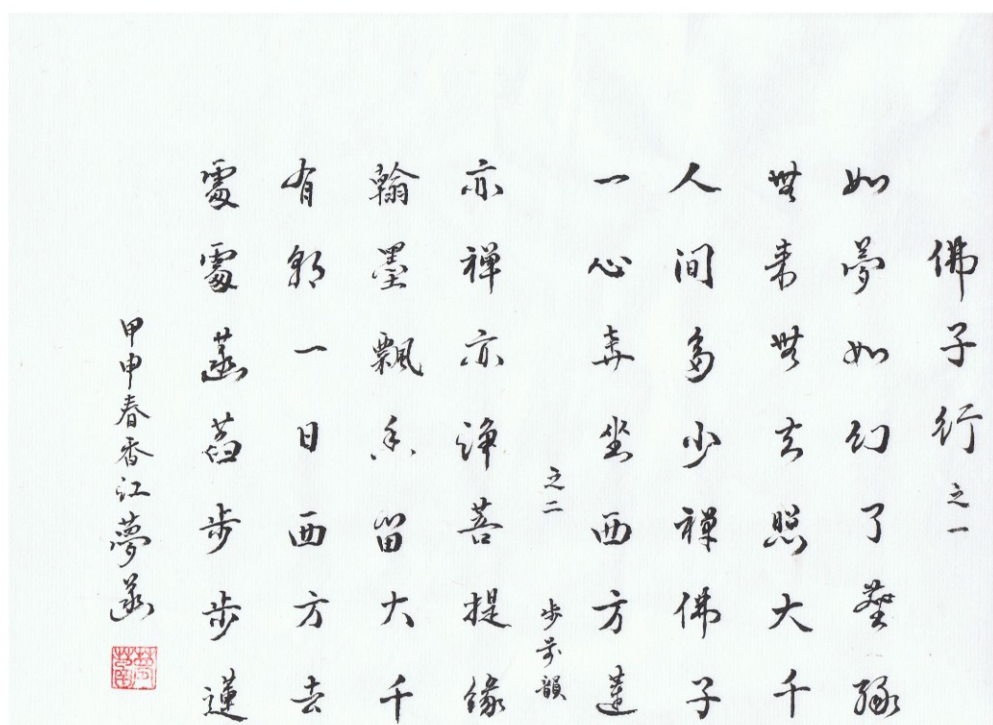 佛子行 之一
如夢如幻了塵緣
無来無去照大千
人间多少禅佛子
一心坐西方蓮
之二 步前韻
亦禅亦淨菩提緣
翰墨飄香留大千
有朝一日西方去
處處菡萏步步蓮
甲申春香江夢菡